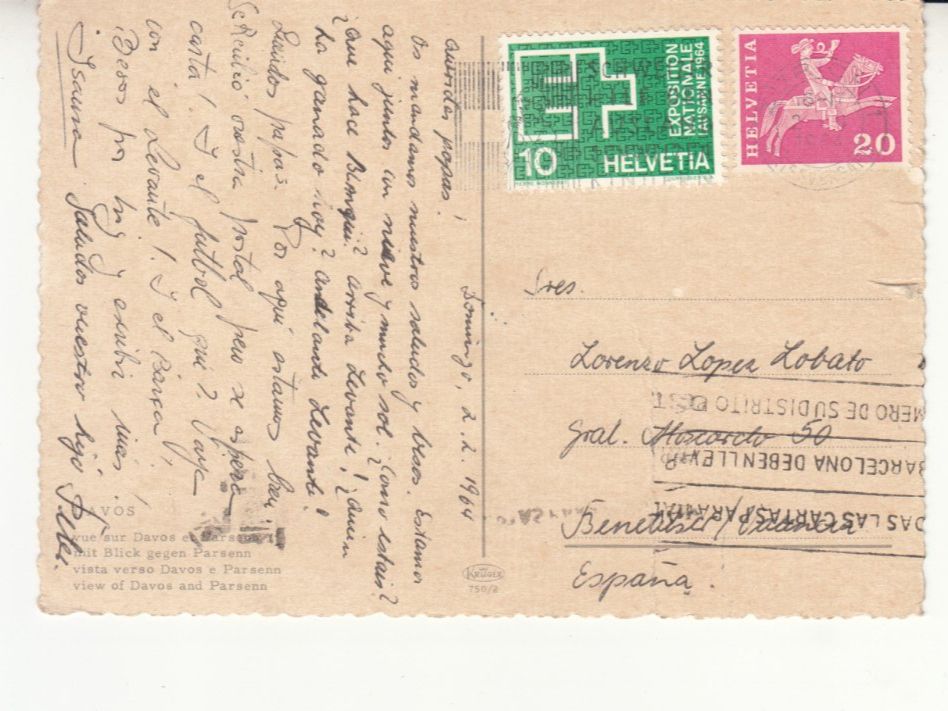 Domingo, 2.2.1964
queridos papas!
Os mandamos nuestros saludos y besos. Estamos
aqui juntos con nieve y mucho sol. ¿Como estais?
¿que hace Bimqui? arriba Levante! ¿quien
ha granado hoy? andelante Levante!
Queridos papas. Por aqui estamos bien.
Se recibio vuestra postal pero se espera
carta! Y el futbol que? Vaya
con el Levante! Y el Barça!
Besos por hoy y escribir mas!
Isaura Saludos vuestro hijo
EXPOSITION
NATIONALE
LAUSANNE 1964
10 HELVETIA
HELVETIA
20
Sres.
Lorenzo Lopez Lobato
Gral. Moscardo 50
Benetuser/Valencia
España.
MERO DE SU DISTRITO
BARCELONA DEBEN LLEVAR
DAS LAS CARTAS PARA
DAVOS
vue sur Davos et Parsenn
mit Blick gegen Parsenn
vista verso Davos e Parsenn
view of Davos and Parsenn
KRÜGER
750/2